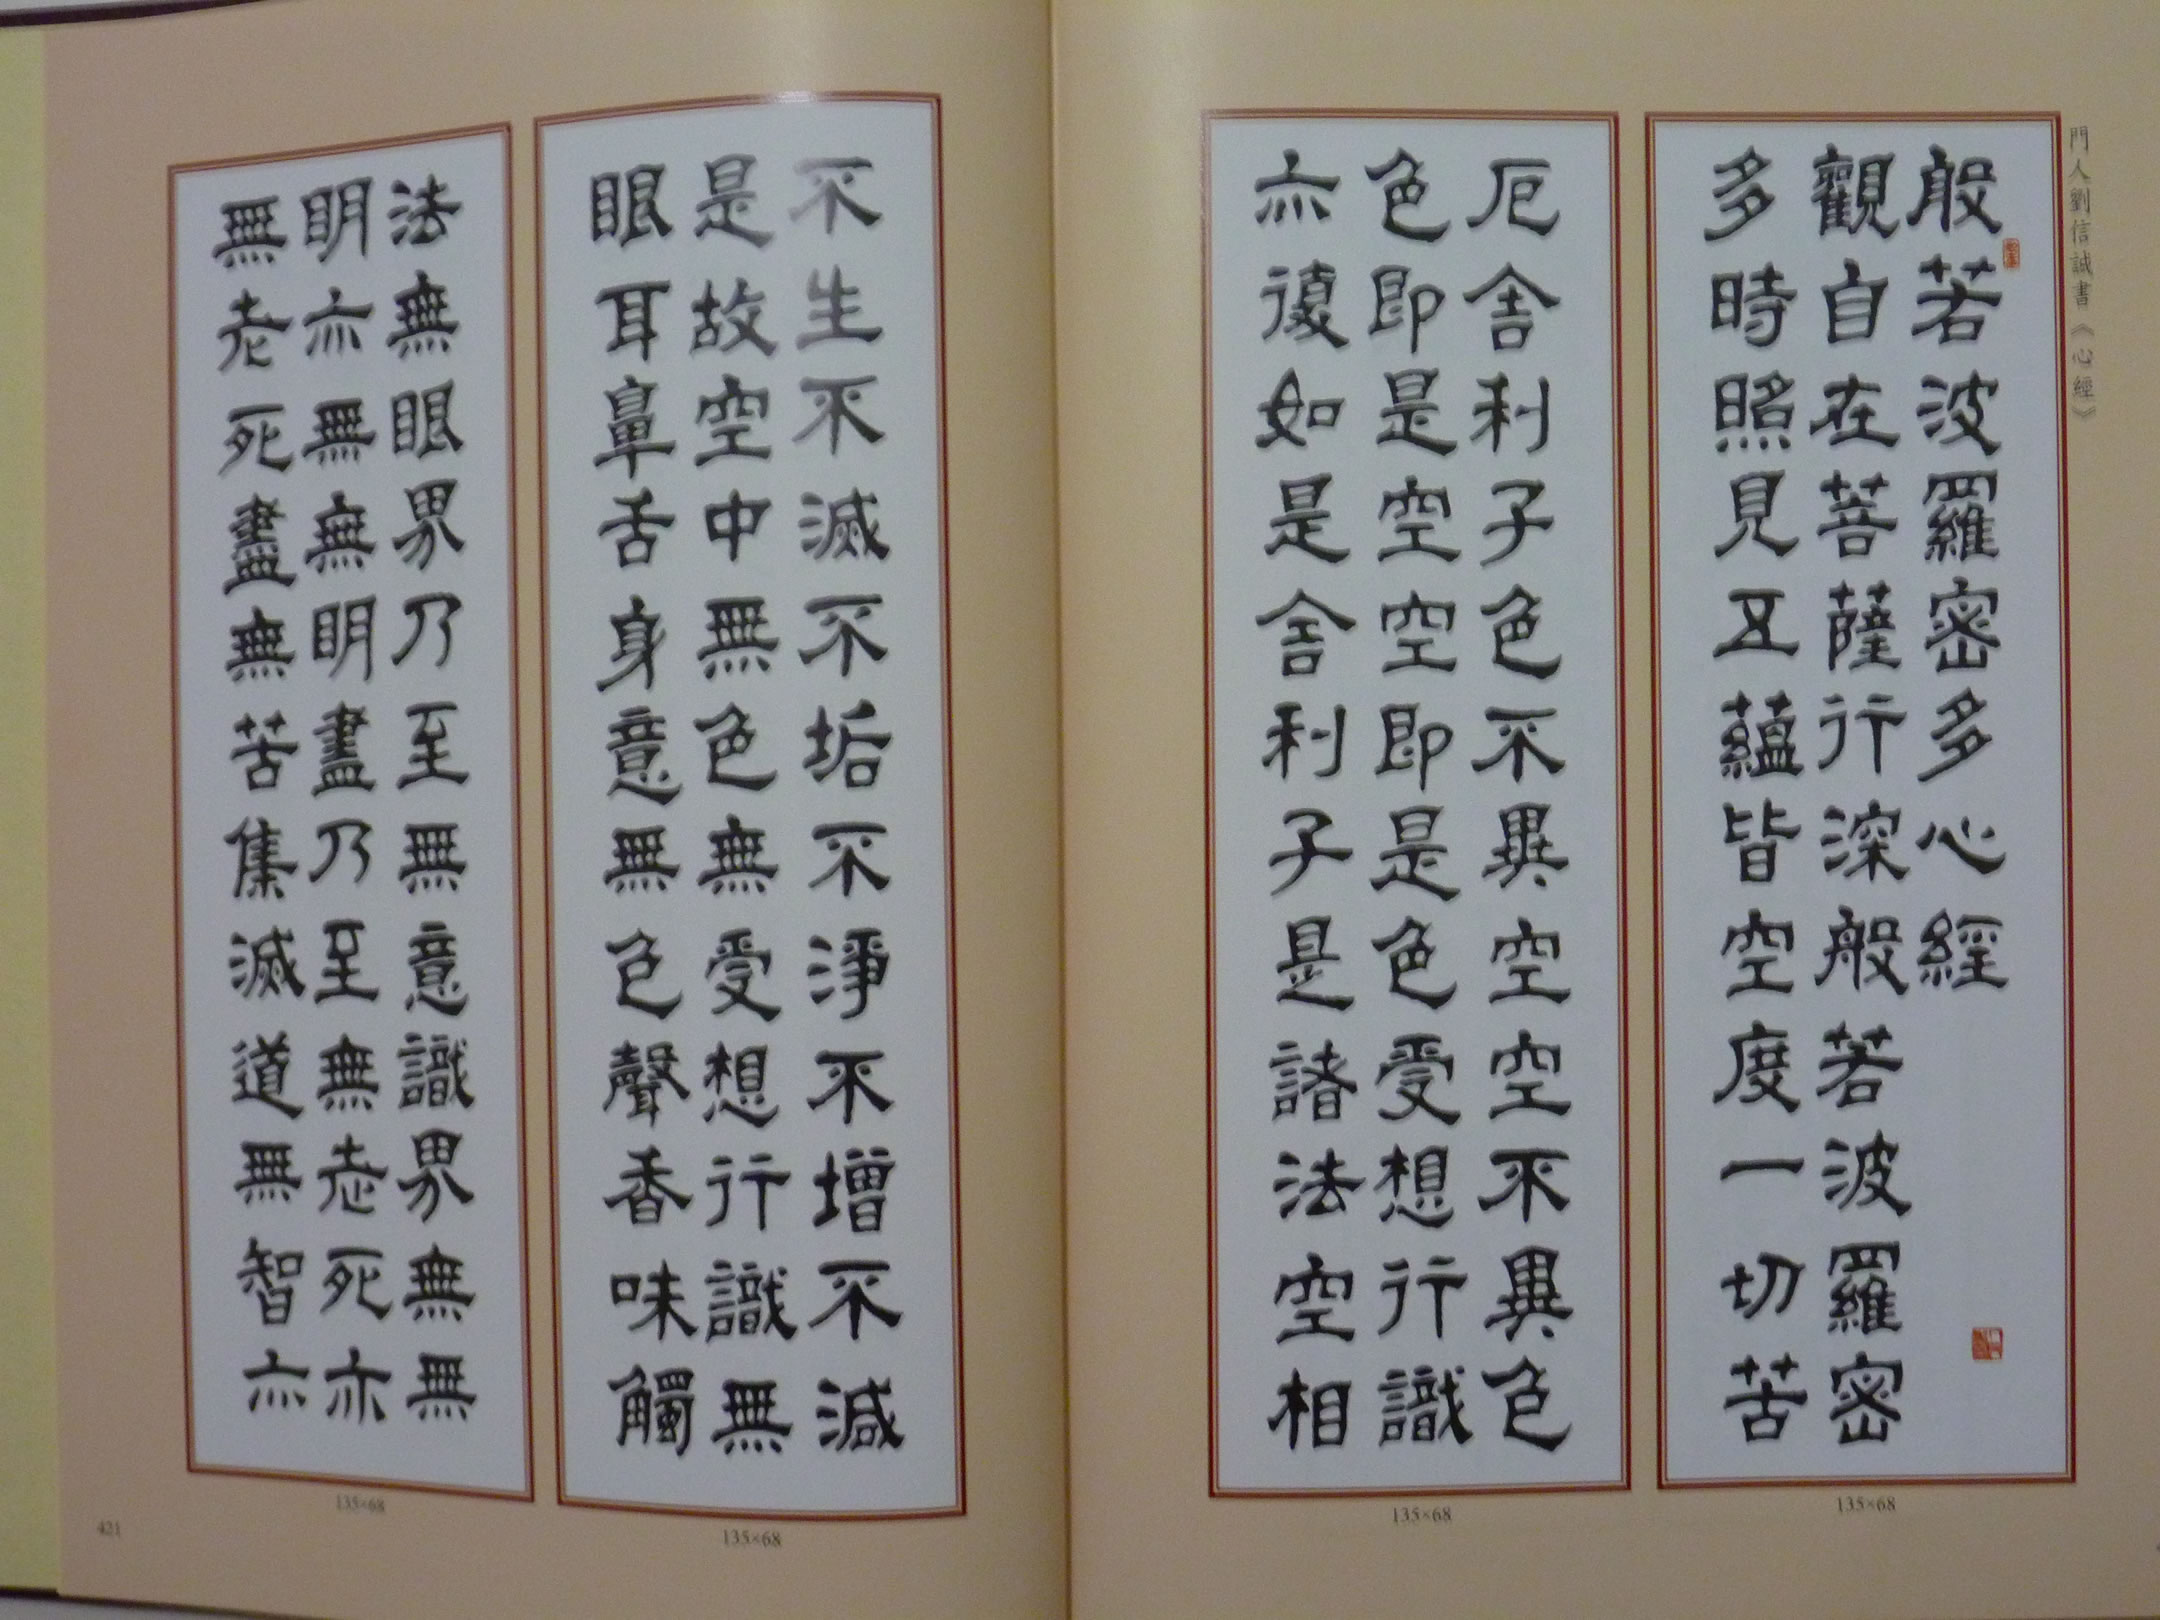 門人劉信誠書《心經》
般若波羅密多心經
觀自在菩薩行深般若波羅密
多時照見五蘊皆空度一切苦
厄舍利子色不異空空不異色
色即是空空即是色受想行識
亦復如是舍利子是諸法空相
135×68
135×68
不生不滅不垢不淨不增不減
是故空中無色無受想行識無
眼耳鼻舌身意無色聲香味觸
法無眼界乃至無意識界無無
明亦無無明盡乃至無老死亦
無老死盡無苦集滅道無智亦
135×68
135×68
421